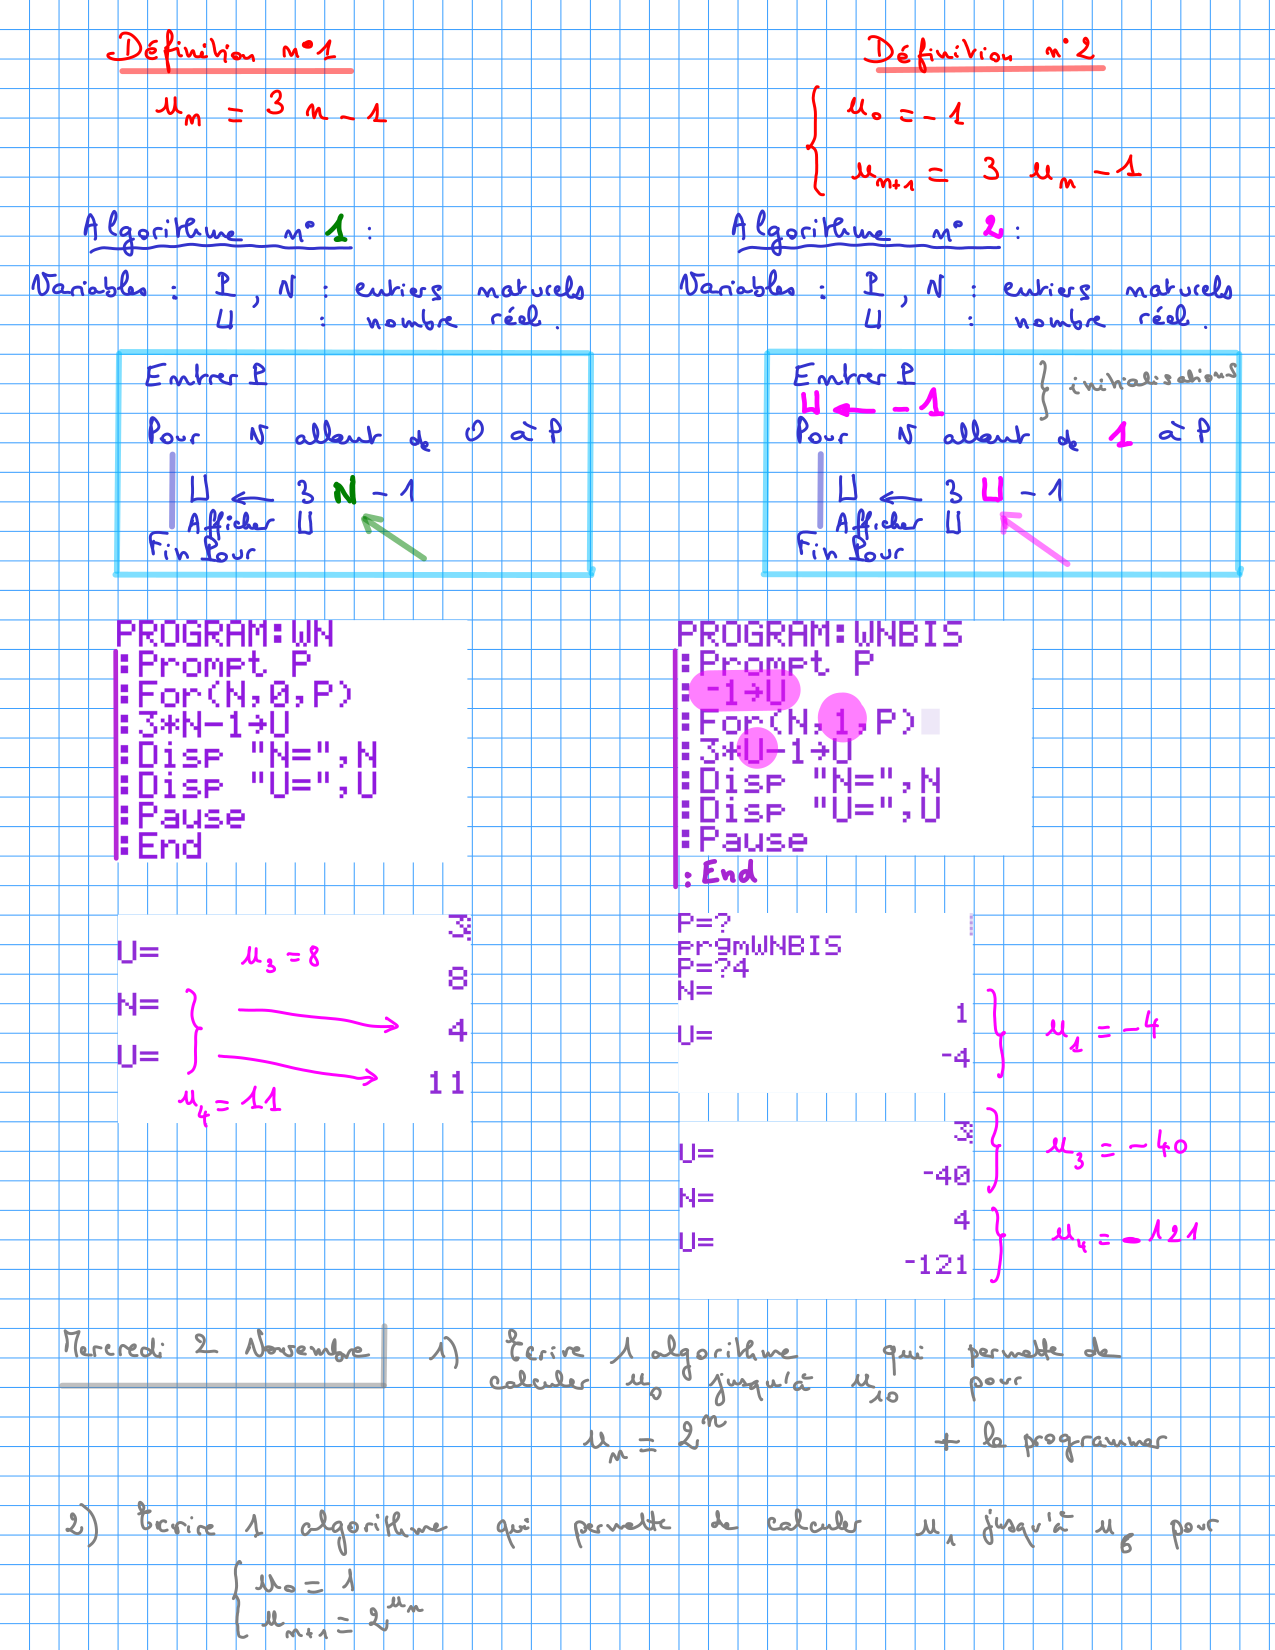 Définition n°1
u_n = 3 n - 1
Algorithme n° 1 :
Variables : P, N : entiers naturels
U : nombre réel.
Entrer P
Pour N allant de 0 à P
U ← 3 N - 1
Afficher U
Fin Pour
PROGRAM:WN
:Prompt P
:For(N,0,P)
:3*N-1→U
:Disp "N=",N
:Disp "U=",U
:Pause
:End
3
U=
u_3 = 8
8
N=
4
U=
11
u_4 = 11
Définition n°2
u_0 = -1
u_{n+1} = 3 u_n - 1
Algorithme n° 2 :
Variables : P, N : entiers naturels
U : nombre réel.
Entrer P
U ← -1
initialisations
Pour N allant de 1 à P
U ← 3 U - 1
Afficher U
Fin Pour
PROGRAM:WNBIS
:Prompt P
:-1→U
:For(N,1,P)
:3*U-1→U
:Disp "N=",N
:Disp "U=",U
:Pause
:End
P=?
prgmWNBIS
P=?4
N=
1
U=
-4
u_1 = -4
3
U=
-40
u_3 = -40
N=
4
U=
-121
u_4 = -121
Mercredi 2 Novembre
1) Ecrire 1 algorithme qui permette de
calculer u_0 jusqu'à u_10 pour
u_n = 2^n + le programmer
2) Ecrire 1 algorithme qui permette de calculer u_1 jusqu'à u_6 pour
u_0 = 1
u_{n+1} = 2^{u_n}